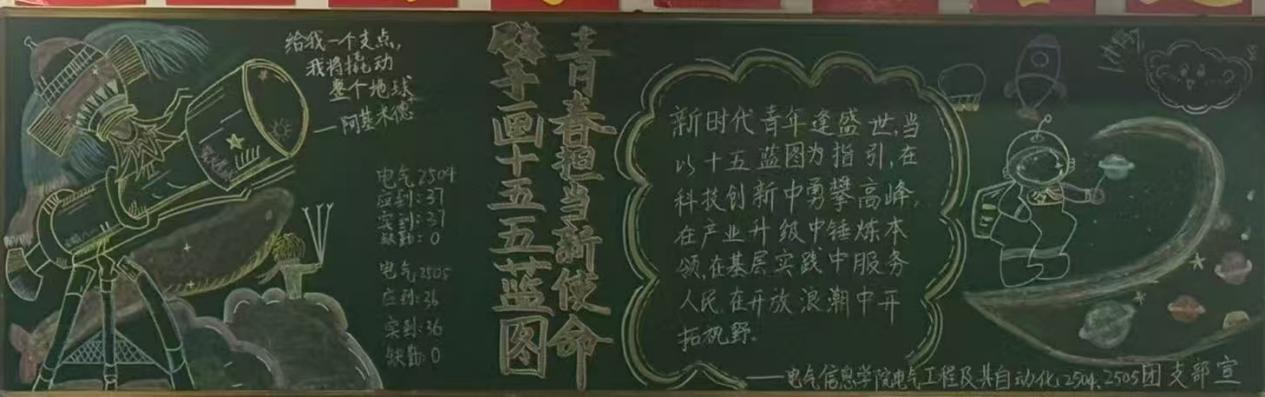 给我一个支点，
我将撬动
整个地球
——阿基米德
电气2504
应到：37
实到：37
缺勤：0
电气2505
应到：36
实到：36
缺勤：0
青春担当新使命
皴手画十五五蓝图
新时代青年逢盛世，当
以十五蓝图为指引，在
科技创新中勇攀高峰，
在产业升级中锤炼本
领，在基层实践中服务
人民，在开放浪潮中开
拓视野。
——电气信息学院电气工程及其自动化2504、2505团支部宣